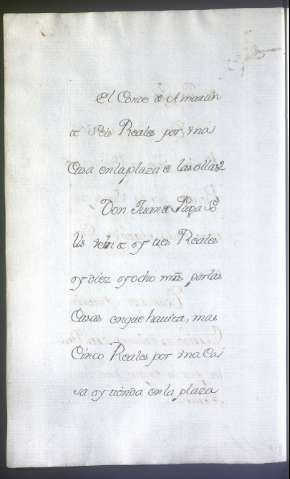 El Conde de Amarante
de Seis Reales por vna
Casa en la plaza de las ollas
Don Juan de
Vs veinte y tres Reales
y diez y ocho mrs por las
Casas enque hauita, mas
Cinco Reales por vna Ca
sa y tienda en la plaza